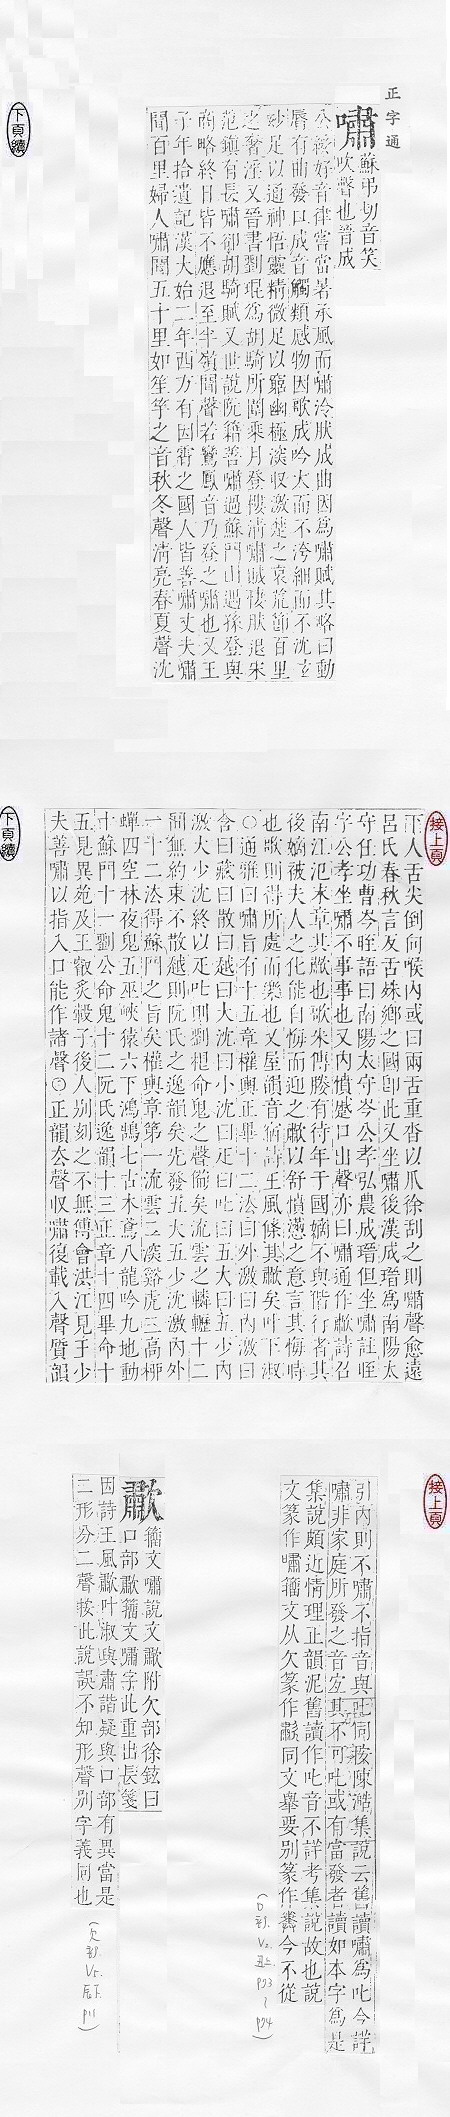 正字通
嘯
蘇弔切音笑
吹聲也晉成
公綏好音律嘗當暑承風而嘯泠肰成曲因爲嘯賦其略曰動
脣有曲發口成音觸類感物因歌成吟大而不洿細而不沈玄
妙足以通神悟靈精微足以窮幽極深收激楚之哀荒節百里
之奢淫又晉書劉琨爲胡騎所圍乘月登樓淸嘯賊悽肰退宋
范鎭有長嘯卻胡騎賦又世說阮籍善嘯過蘇門山遇孫登與
商略終日皆不應退至半嶺聞聲若鸞鳳音乃登之嘯也又王
子年拾遺記漢大始二年西方有因霄之國人皆善嘯丈夫嘯
聞百里婦人嘯聞五十里如笙竽之音秋冬聲淸亮春夏聲沈
下頁續
接上頁
下人舌尖倒向喉內或曰兩舌重沓以爪徐刮之則嘯聲愈遠
呂氏春秋言反舌殊鄕之國卽此又坐嘯後漢成瑨爲南陽太
守任功曹岑晊語曰南陽太守岑公孝弘農成瑨但坐嘯註晊
字公孝坐嘯不事事也又內憤蹙口出聲亦曰嘯通作歗詩召
南江氾末章其歗也歌朱傳媵有待年于國嫡不與偕行者其
後嫡被夫人之化能自悔而迎之歗以舒憤懣之意言其悔時
也歌則得所處而樂也又屋韻音宿詩王風條其歗矣叶下淑
○通雅曰嘯旨有十五章權輿正畢十二法曰外激曰內激曰
含曰藏曰散曰越曰大沈曰小沈曰疋曰叱曰五大曰五少內
激大少沈終以疋叱則劉想命鬼之聲節矣流雲之轔轣十二
間無約束不散越則阮氏之逸韻矣先發五大五少沈激內外
一十二法得蘇門之旨矣權輿章第一流雲二深谿虎三高柳
蟬四空林夜鬼五巫峽猿六下鴻鵠七古木鳶八龍吟九地動
十蘇門十一劉公命鬼十二阮氏逸韻十三正章十四畢命十
五見異苑及王叡炙轂子後人別刻之不無傅會洪江見王少
夫善嘯以指入口能作諸聲○正韻厺聲收嘯復載入聲質韻
下頁續
接上頁
引內則不嘯不指音與叱同按陳澔集說云舊讀嘯爲叱今詳
嘯非家庭所發之音宐其不可叱或有當發者讀如本字爲是
集說頗近情理正韻泥舊讀作叱音不詳考集說故也說
文篆作嘯籀文从欠篆作歗同文舉要別篆作今不從
(口部.V2.丑上.p73~p74)
歗
籀文嘯說文歗附欠部徐鉉曰
口部歗籀文嘯字此重出長箋
因詩王風歗叶淑與肅諧疑與口部有異當是
二形分二聲按此說誤不知形聲別字義同也
(欠部.V5.辰下.p11)